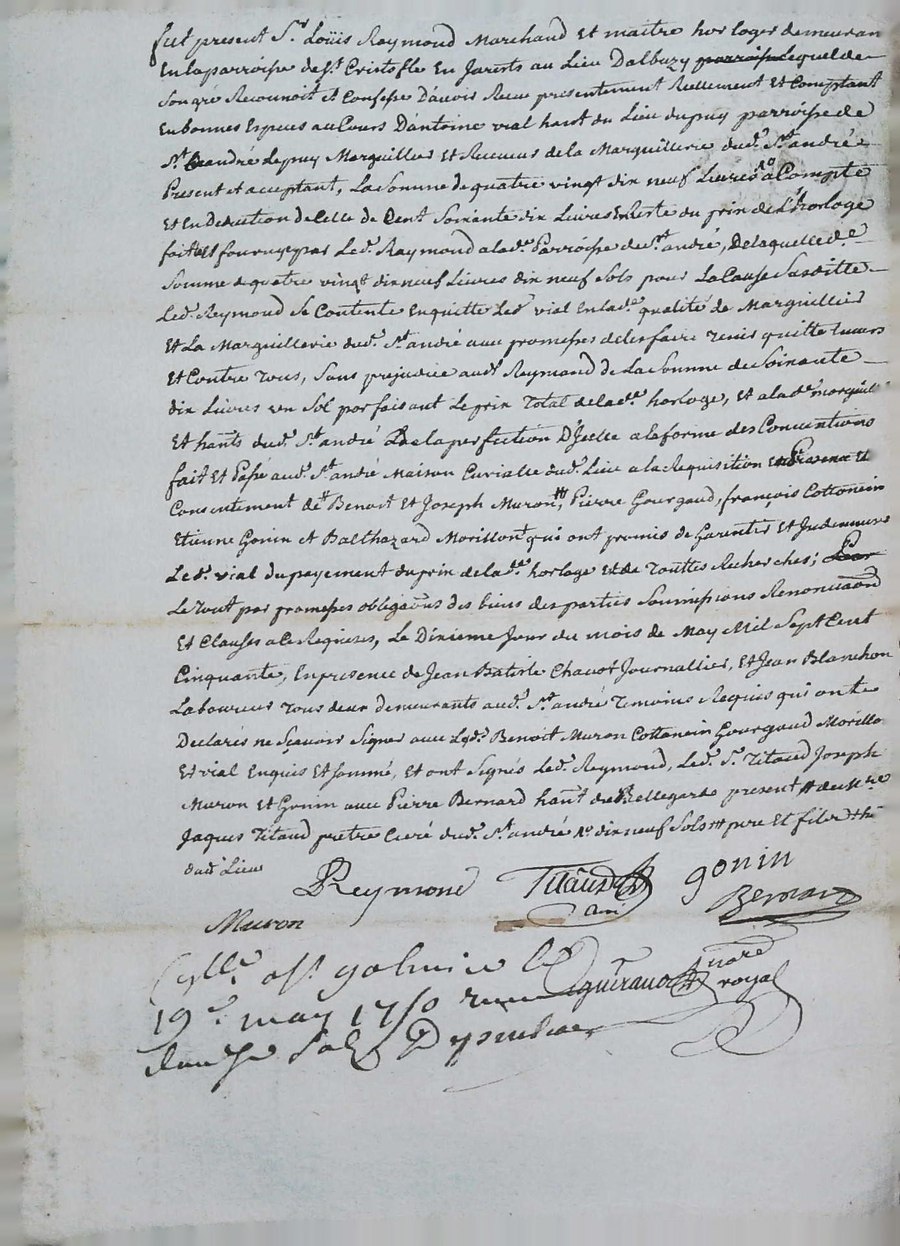 fut present Sr. Loüis Reymond Marchand Et maitre horloger demeuran
En la parroisse de St. Cristofle En Jarests au Lieu Dalbuzy parroisse Lequel de
Son gré Reconnoit Et Confesse D'avoir Receu presentement Reellement Et Comptant
En bonnes Especes au Cours D'antoine vial hant du Lieu du puy parroisse de
St. andré Lepuy Marguillier Et Receveur de la Marguillerie dud. St. andré
Present et acceptant, La Somme de quatre vingt dix neuf Livres a Compte
Et En Deduction de Celle de Cent Soixante dix Livres En Reste du prix de L'horloge
faite Et fournye par Led. Reymond a lad. Parroisse de St. andré, De laquelle d.e
Somme de quatre vingt dix neuf Livres dix neuf Sols pour La Cause Susditte
Led. Reymond Se Contente En quitte Led. vial En lad.e qualité de Marguillier
Et La Marguillerie dud. St. andré avec promesses de les faire tenir quitte Envers
Et Contre tous, Sans prejudice aud. Reymond de La Somme de Soixante
dix Livres un Sol parfaisant Le prix Total de lad.e horloge, et a lad.e marguill
Et hants dud. St. andré De la perfection D'Jcelle a la forme des Conventions
fait Et Passé aud. St. andré Maison Curialle dud. Lieu a la Requisition Et
Consentement de Benoit Et Joseph Muron, Pierre Gourgaud, françois Cottancin
Etienne Gonin Et Balthazard Morillon qui ont promis de Garentir Et Jndemniser
Le d. vial du payement du prix de lad.e horloge et de Touttes Recherches;
Le tout par promesses obligaons des biens des parties Soumissions Renonciaons
Et Clauses a Ce Requises, Le Dixieme Jour du mois de May Mil Sept Cent
Cinquante, En presence de Jean Batiste Chavot Journallier, Et Jean Blanchon
Laboureur tous deux demeurants aud. St. andré temoins Requis qui ont
Declarés ne Sçavoir Signer avec Lesd. Benoit Muron Cottancin Gourgaud Morillo
Et vial Enquis Et Sommé, Et ont Signés Led. Reymond, Led. Sr. Titaud Joseph
Muron Et Gonin avec Pierre Bernard hant de Bellegarde present # de Mre
Jaques Titaud pretre Curé dud. St. andré dix neuf Sols pere Et fils
dud. Lieu
Reymond Titaud gonin
Muron Bernard
19e may 1750
royal